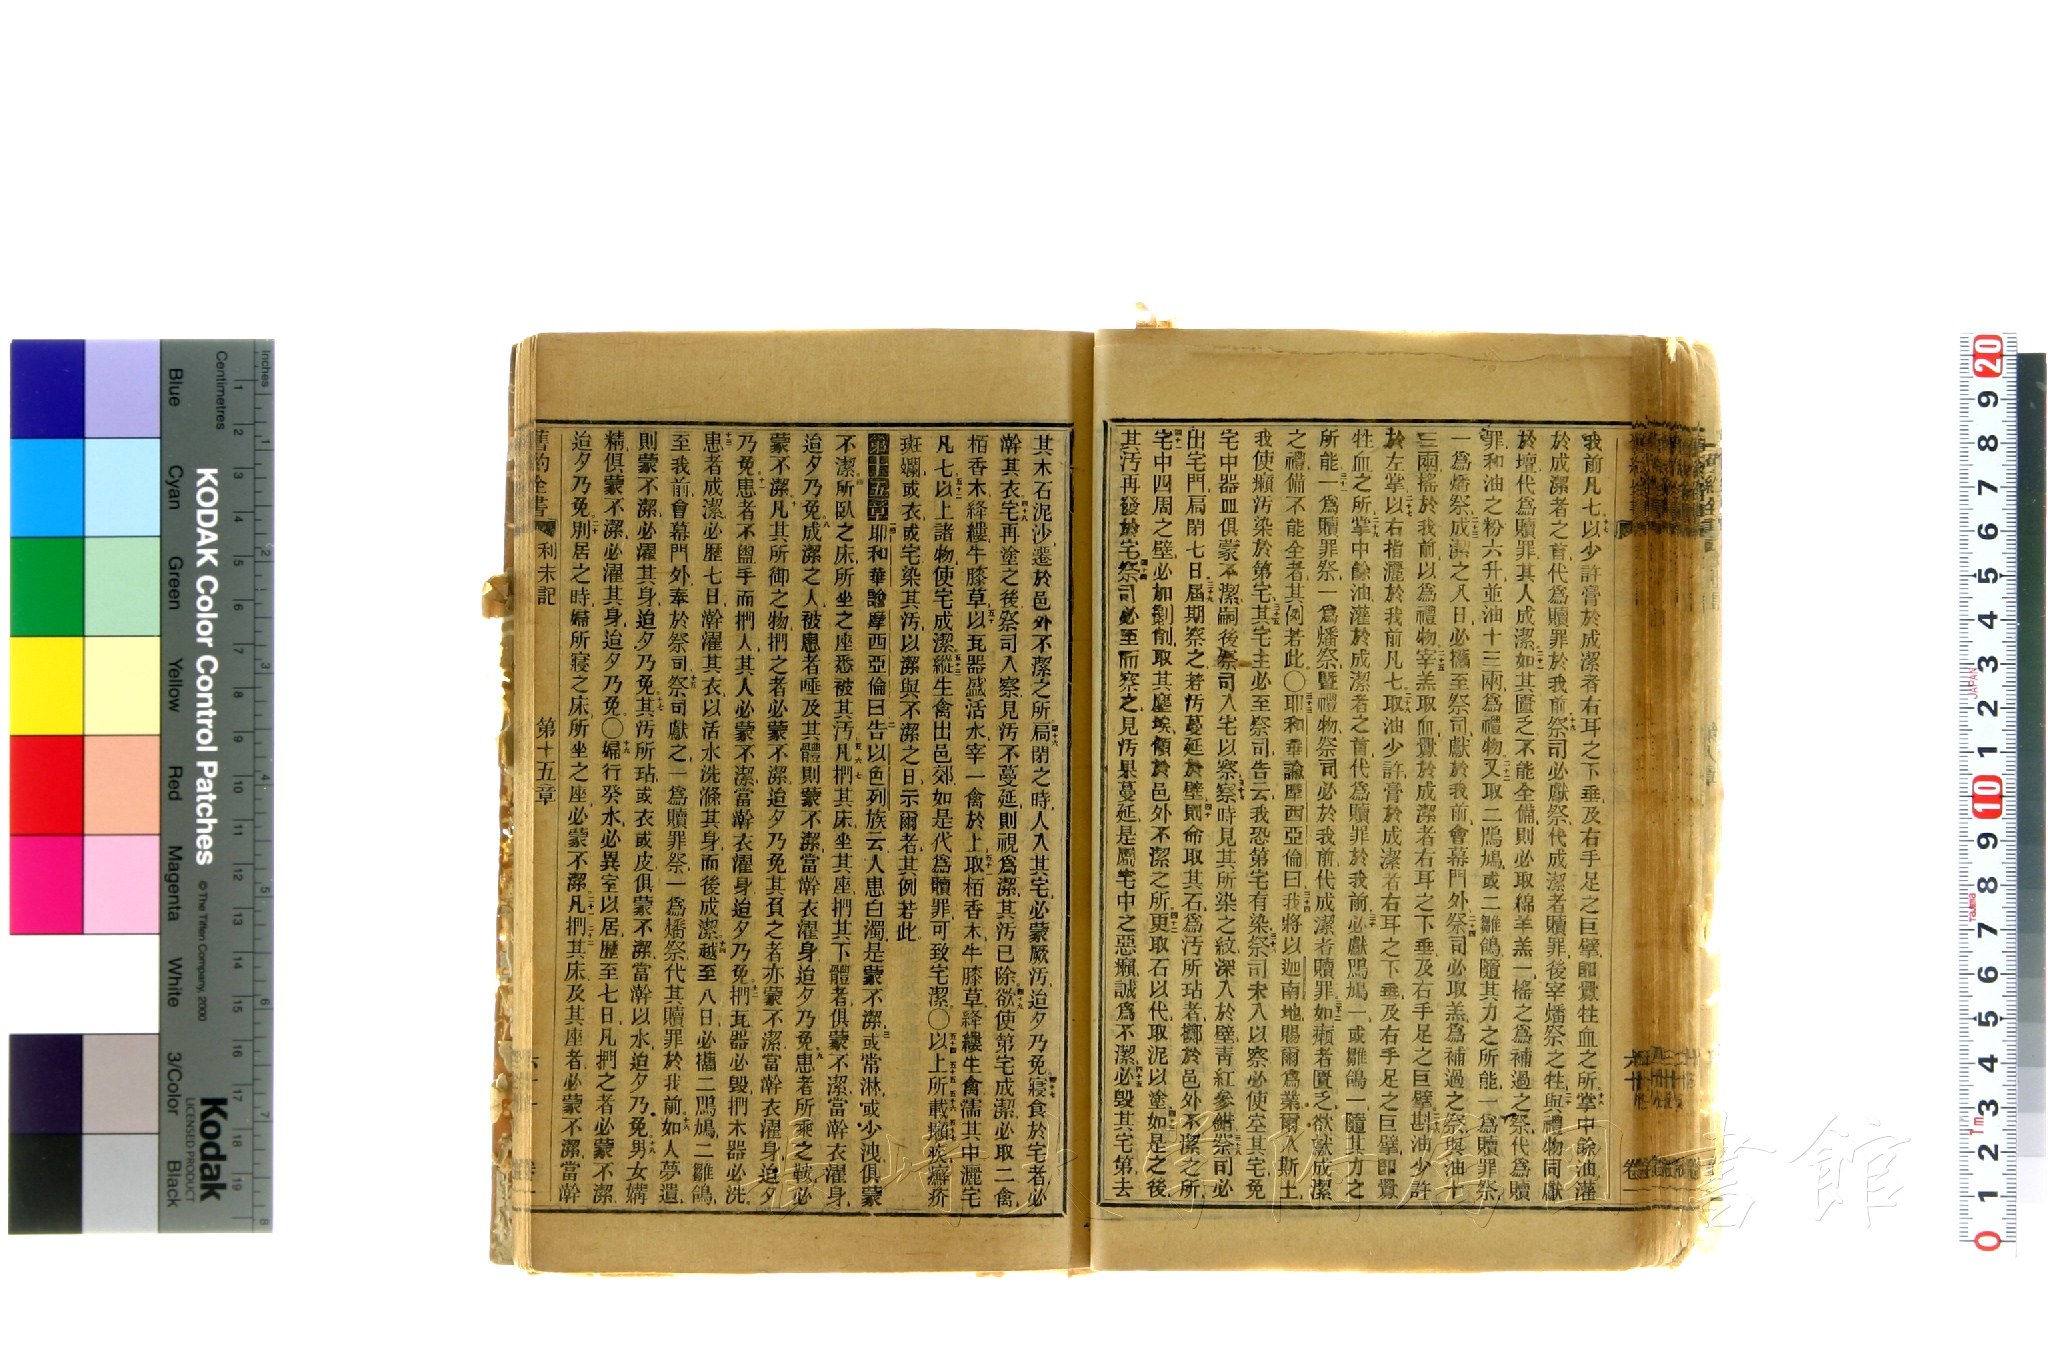 我前凡七以少許膏於成潔者右耳之下垂及右手足之巨擘卽釁牲血之所掌中餘油灌
於成潔者之首代爲贖罪於我前祭司必獻祭代成潔者贖罪後宰燔祭之牲與禮物同獻
於壇代爲贖罪其人成潔如其匱乏不能全備則必取綿羊羔一搖之爲補過之祭代爲贖
罪和油之粉六升並油十三兩爲禮物又取二鳲鳩或二雛鴿隨其力之所能一爲贖罪祭
一爲燔祭成潔之八日必攜至祭司獻於我前會幕門外祭司必取羔爲補過之祭與油十
三兩搖於我前以爲禮物宰羔取血釁於成潔者右耳之下垂及右手足之巨擘斟油少許
於左掌以右指灑於我前凡七取油少許膏於成潔者右耳之下垂及右手足之巨擘卽釁
牲血之所掌中餘油灌於成潔者之首代爲贖罪於我前必獻鳲鳩一或雛鴿一隨其力之
所能一爲贖罪祭一爲燔祭曁禮物祭司必於我前代成潔者贖罪如癩者匱乏欲獻成潔
之禮備不能全者其例若此〇耶和華諭摩西亞倫曰我將以迦南地賜爾爲業爾入斯土
我使癩汚染於第宅其宅主必至祭司告云我恐第宅有染祭司未入以察必使空其宅免
宅中器皿俱蒙不潔嗣後祭司入宅以察察時見其所染之紋深入於壁靑紅參錯祭司必
出宅門扃閉七日屆期察之若汚蔓延於壁則命取其石爲汚所玷者擲於邑外不潔之所
宅中四周之壁必加劃削取其塵埃傾於邑外不潔之所更取石以代取泥以塗如是之後
其汚再發於宅祭司必至而察之見汚果蔓延是屬宅中之惡癩誠爲不潔必毀其宅第去
其木石泥沙遷於邑外不潔之所扃閉之時人入其宅必蒙厥汚迨夕乃免寢食於宅者必
澣其衣宅再塗之後祭司入察見汚不蔓延則視爲潔其汚已除欲使第宅成潔必取二禽
栢香木絳縷牛膝草以瓦器盛活水宰一禽於上取栢香木牛膝草絳縷生禽濡其中灑宅
凡七以上諸物使宅成潔縱生禽出邑郊如是代爲贖罪可致宅潔〇以上所載癩疾癬疥
斑斕或衣或宅染其汚以潔與不潔之日示爾者其例若此
第十五章耶和華諭摩西亞倫曰告以色列族云人患白濁是蒙不潔或常淋或少洩俱蒙
不潔所臥之床所坐之座悉被其汚凡捫其床坐其座捫其下體者俱蒙不潔當澣衣濯身
迨夕乃免成潔之人被患者唾及其體則蒙不潔當澣衣濯身迨夕乃免患者所乘之鞍必
蒙不潔凡其所御之物捫之者必蒙不潔迨夕乃免其負之者亦蒙不潔當澣衣濯身迨夕
乃免患者不盥手而捫人其人必蒙不潔當澣衣濯身迨夕乃免捫瓦器必毀捫木器必洗
患者成潔必歷七日澣濯其衣以活水洗滌其身而後成潔越至八日必攜二鳲鳩二雛鴿
至我前會幕門外奉於祭司祭司獻之一爲贖罪祭一爲燔祭代其贖罪於我前如人夢遺
則蒙不潔必濯其身迨夕乃免其汚所玷或衣或皮俱蒙不潔當澣以水迨夕乃免男女媾
精俱蒙不潔必濯其身迨夕乃免〇婦行癸水必異室以居歷至七日凡捫之者必蒙不潔
迨夕乃免別居之時婦所寢之床所坐之座必蒙不潔凡捫其床及其座者必蒙不潔當澣
舊約全書 利未記 第十五章
KODAK Color Control Patches
© The Tiffen Company, 2000
Kodak
LICENSED PRODUCT
Inches
Centimetres
Blue
Cyan
Green
Yellow
Red
Magenta
White
3/Color
Black
JAPAN
Tajima
長崎大学附属図書館